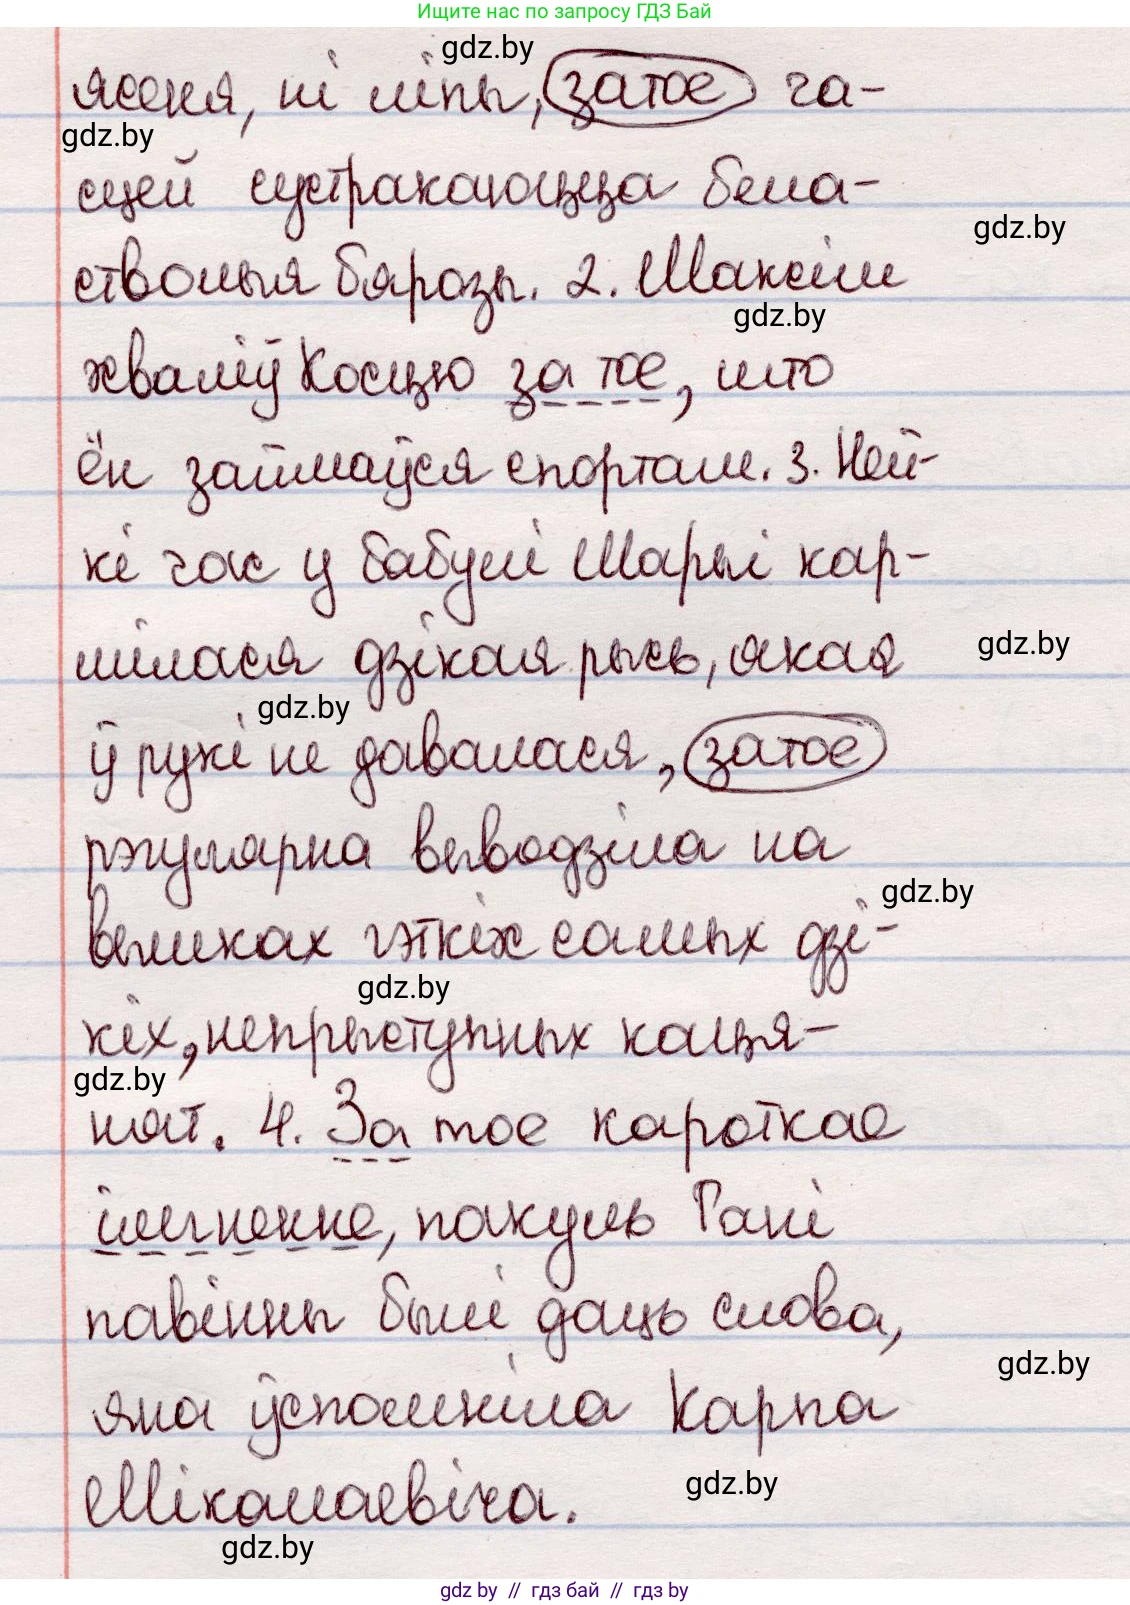 Ищите нас по запросу ГДЗ Бай
gdz.by
ясеня, ні ліпы, затое ча-
gdz.by
сцей сустракаюцца бела-
gdz.by
ствольныя бярозы. 2. Максім
gdz.by
хваліў Косцю за тое, што
ён займаўся спортам. 3. Ней-
кі час у бабулі Марыі кар-
мілася дзікая рысь, якая
gdz.by
gdz.by
ў рукі не давалася, затое
рэгулярна выводзіла на
gdz.by
вышках гэткіх самых дзі-
gdz.by
кіх, непрыступных каця-
gdz.by
нят. 4. За тое кароткае
імгненне, пакуль Гані
павінны былі даць слова,
gdz.by
яна ўспомніла Карпа
Мікалаевіча.
gdz.by
gdz.by
gdz by // гдз бай // гдз by